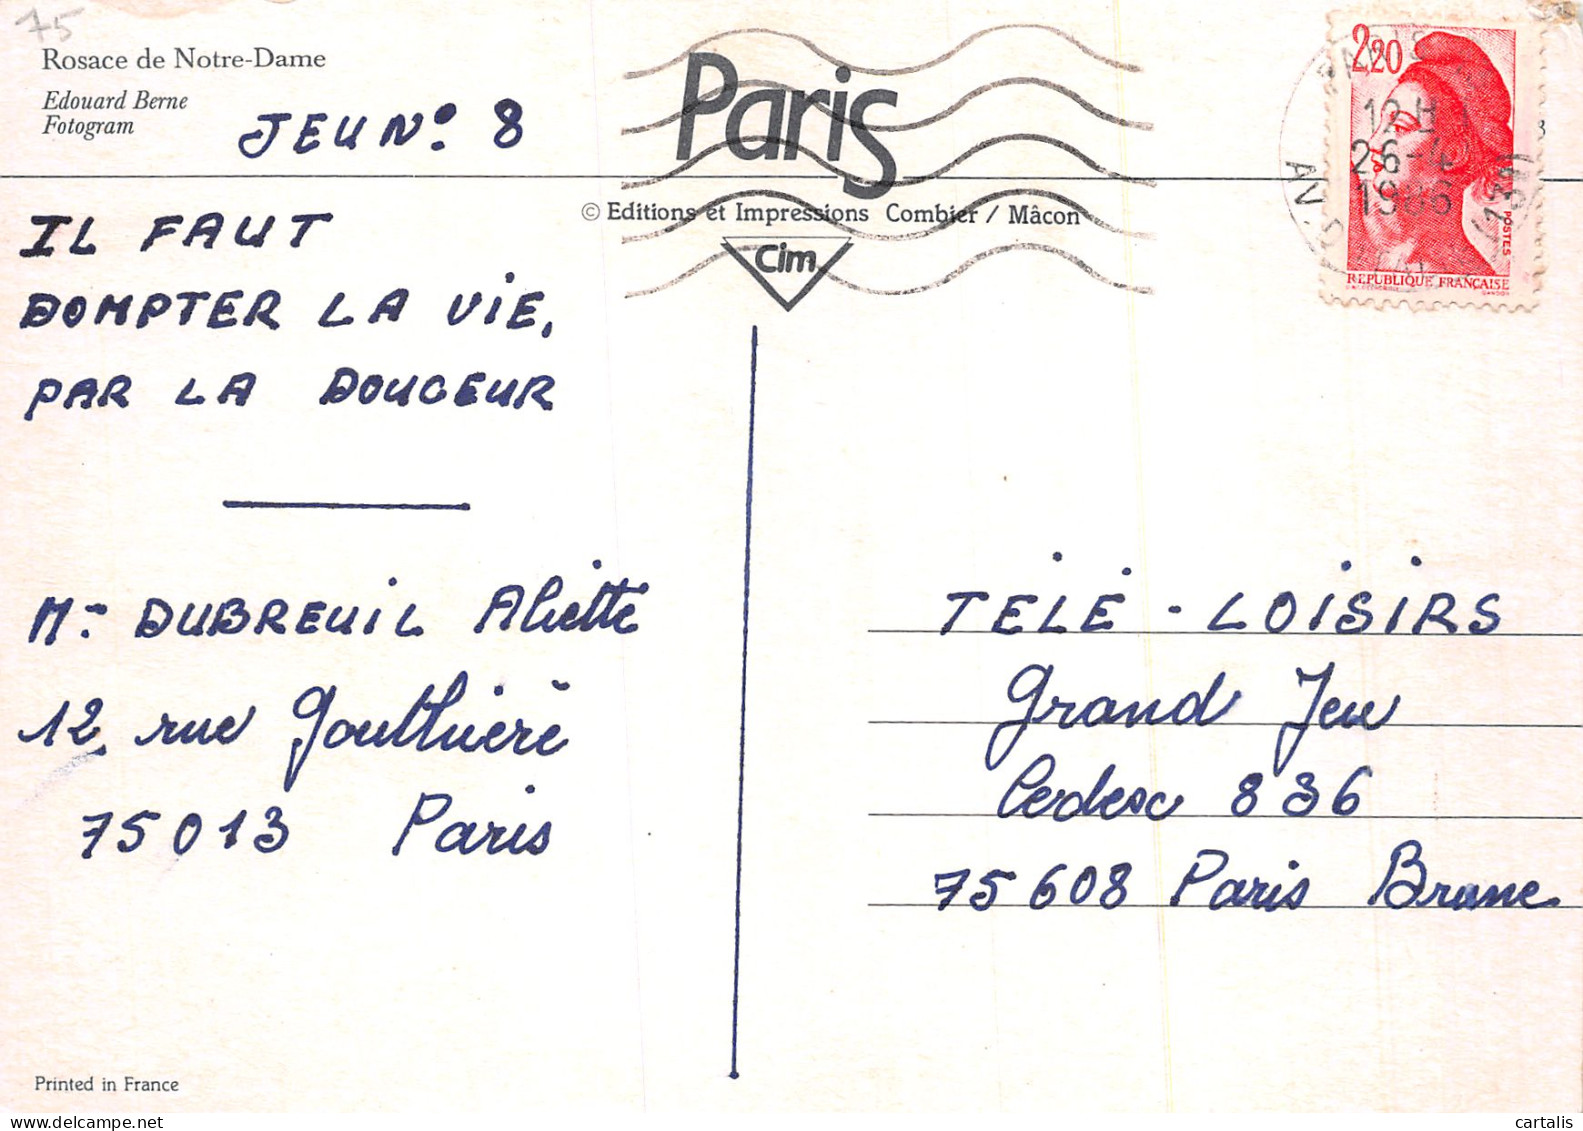 75
Rosace de Notre-Dame
Edouard Berne
Fotogram
JEU N° 8
IL FAUT
DOMPTER LA VIE,
PAR LA DOUCEUR
Me DUBREUIL Aliette
12 rue Gouthière
75013 Paris
Printed in France
Paris
© Editions et Impressions Combier / Mâcon
Cim
2,20
POSTES
REPUBLIQUE FRANÇAISE
GANDON
PARIS
12 H
26-4
1986
(13e)
TÉLÉ - LOISIRS
Grand Jeu
Cedex 836
75608 Paris Brune
cartalis